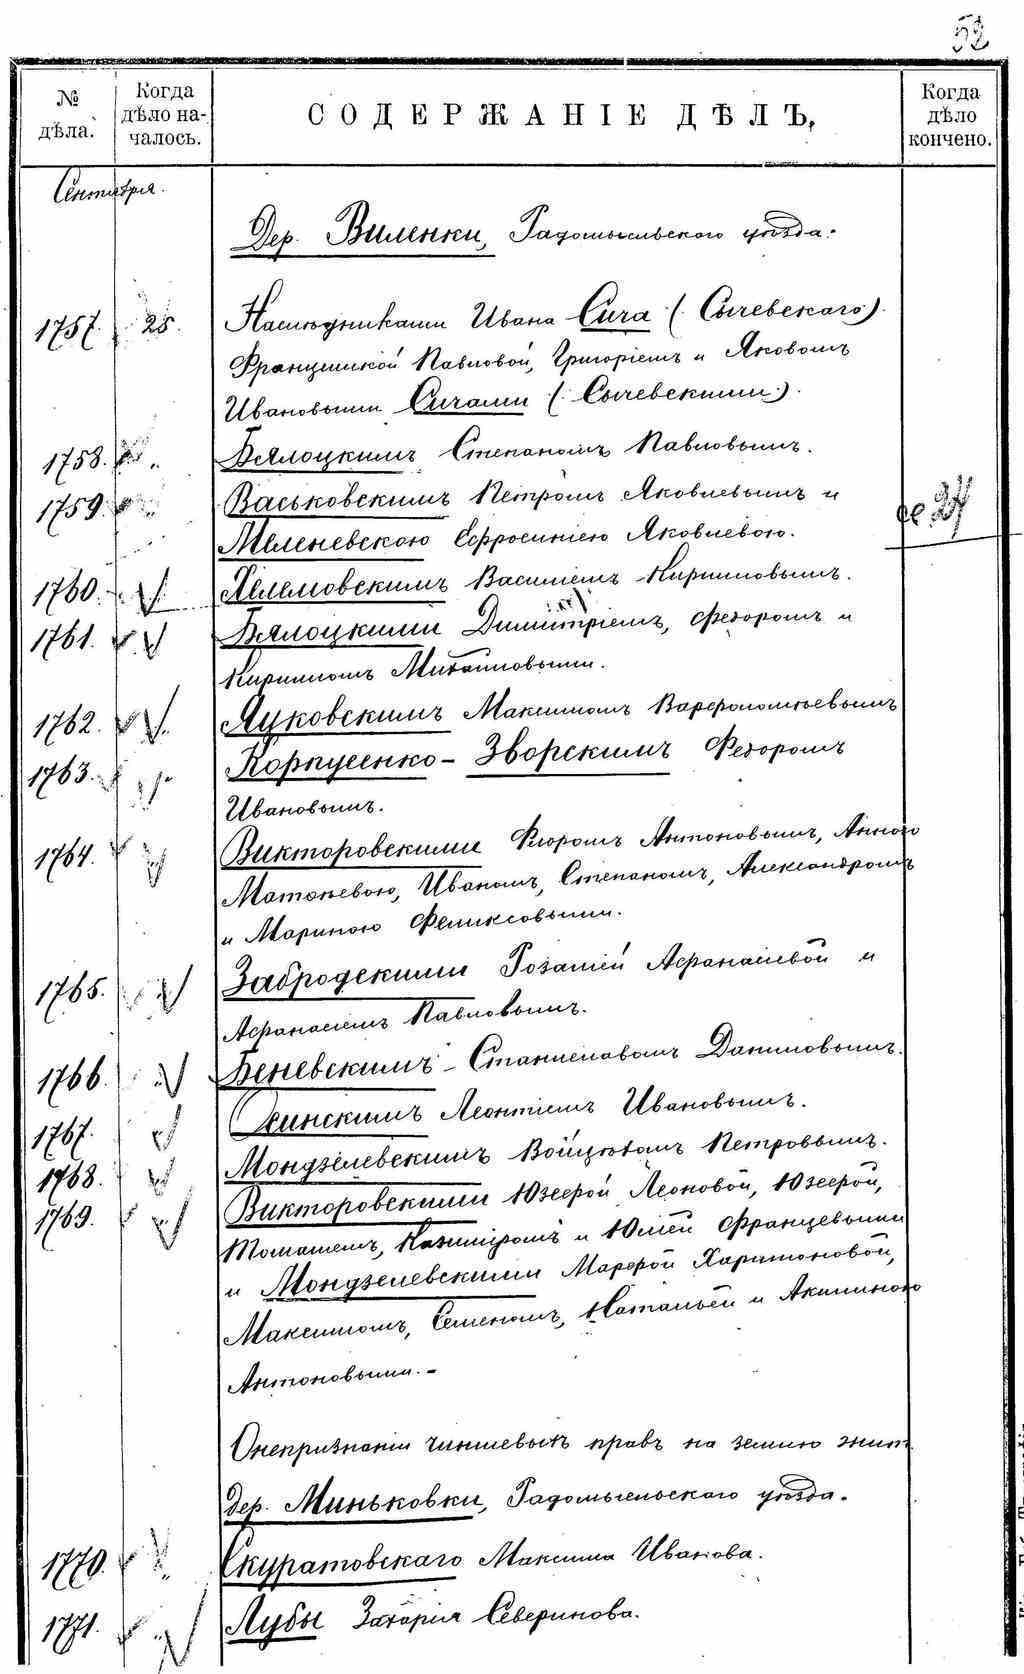 52
№ дѣла.
Когда дѣло началось.
СОДЕРЖАНІЕ ДѢЛЪ.
Когда дѣло кончено.
Сентября.
Дер. Виленки, Радомысльскаго уѣзда.
1757. 25. Наслѣдниками Ивана Сича (Сычевскаго).
Францишкой Павловой, Григоріемъ и Яковомъ
Ивановыми Сичами (Сычевскими).
1758. Бялоцкимъ Степаномъ Павловымъ.
1759. Васьковскимъ Петромъ Яковлевымъ и
Меленевскою Ефросиніею Яковлевою.
1760. Хелемовскимъ Василіемъ Кириловымъ.
1761. Бялоцкими Димитріемъ, Федоромъ и
Кириломъ Михайловыми.
1762. Яцковскимъ Максимомъ Варфоломѣевымъ
1763. Корпусенко-Зворскимъ Федоромъ
Ивановымъ.
1764. Викторовскими Флоромъ Антоновымъ, Анною
Матѳѣевою, Иваномъ, Степаномъ, Александромъ
и Мариною Феликсовыми.
1765. Забродскими Розаліей Афанасіевой и
Афанасіемъ Павловымъ.
1766. Беневскимъ Станиславомъ Даниловымъ.
1767. Осинскимъ Леонтіемъ Ивановымъ.
1768. Мондзелевскимъ Войцѣхомъ Петровымъ.
1769. Викторовскими Юзефой Леоновой, Юзефой,
Томашемъ, Казиміромъ и Юліей Францевыми
и Мондзелевскими Марфой Харитоновой,
Максимомъ, Семеномъ, Натальей и Акилиною
Антоновыми.-
О непризнаніи чиншевыхъ правъ на землю жит.
дер. Миньковки, Радомысльскаго уѣзда.
1770. Скуратовскаго Максима Иванова.
1771. Лубы Захарія Северинова.